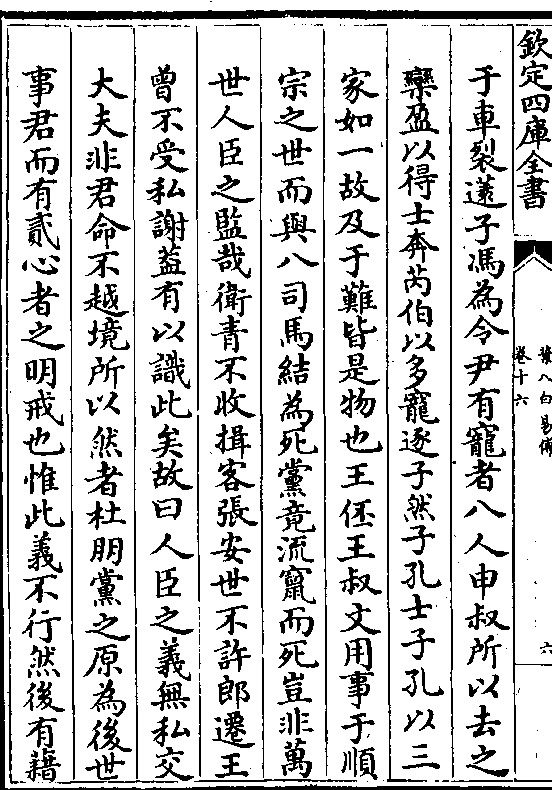 欽定四庫全書
卷十六
六
于車裂薳子馮為令尹有寵者八人申叔所以去之
欒盈以得士奔芮伯以多寵逐子然子孔士子孔以三
家如一故及于難皆是物也王伾王叔文用事于順
宗之世而與八司馬結為死黨竟流竄而死豈非萬
世人臣之監哉衛青不收揖客張安世不許郎遷王
曾不受私謝葢有以識此矣故曰人臣之義無私交
大夫非君命不越境所以然者杜朋黨之原為後世
事君而有貳心者之明戒也惟此義不行然後有藉